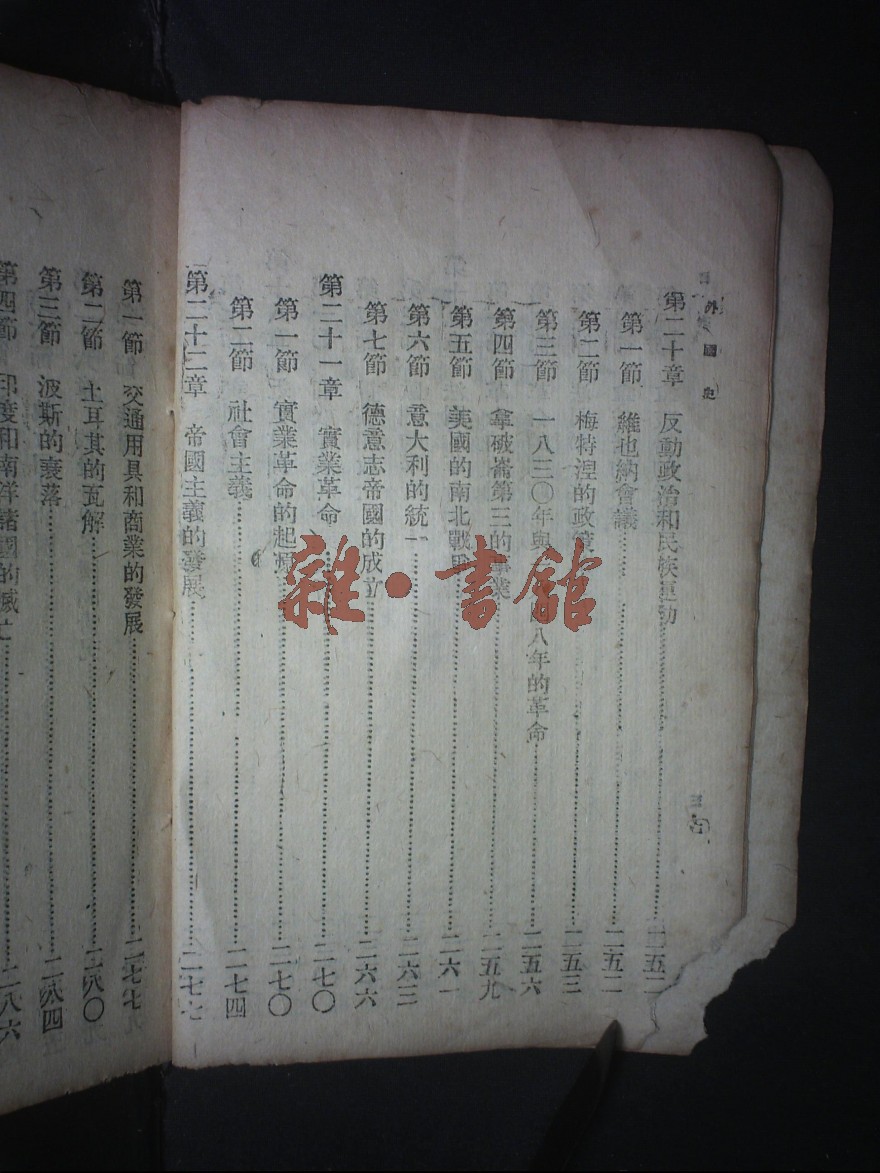 外國史
第二十章 反動政治和民族運動……二五二
第一節 維也納會議……二五二
第二節 梅特涅的政策……二五三
第三節 一八三〇年與 八年的革命……二五六
第四節 拿破崙第三的事業……二五九
第五節 美國的南北戰爭……二六一
第六節 意大利的統一……二六三
第七節 德意志帝國的成立……二六六
第二十一章 實業革命……二七〇
第一節 實業革命的起源……二七〇
第二節 社會主義……二七四
第二十二章 帝國主義的發展……二七七
第一節 交通用具和商業的發展……二七七
第二節 土耳其的瓦解……二八〇
第三節 波斯的衰落……二八四
第四節 印度和南洋諸國的滅亡……二八六
雜·書館